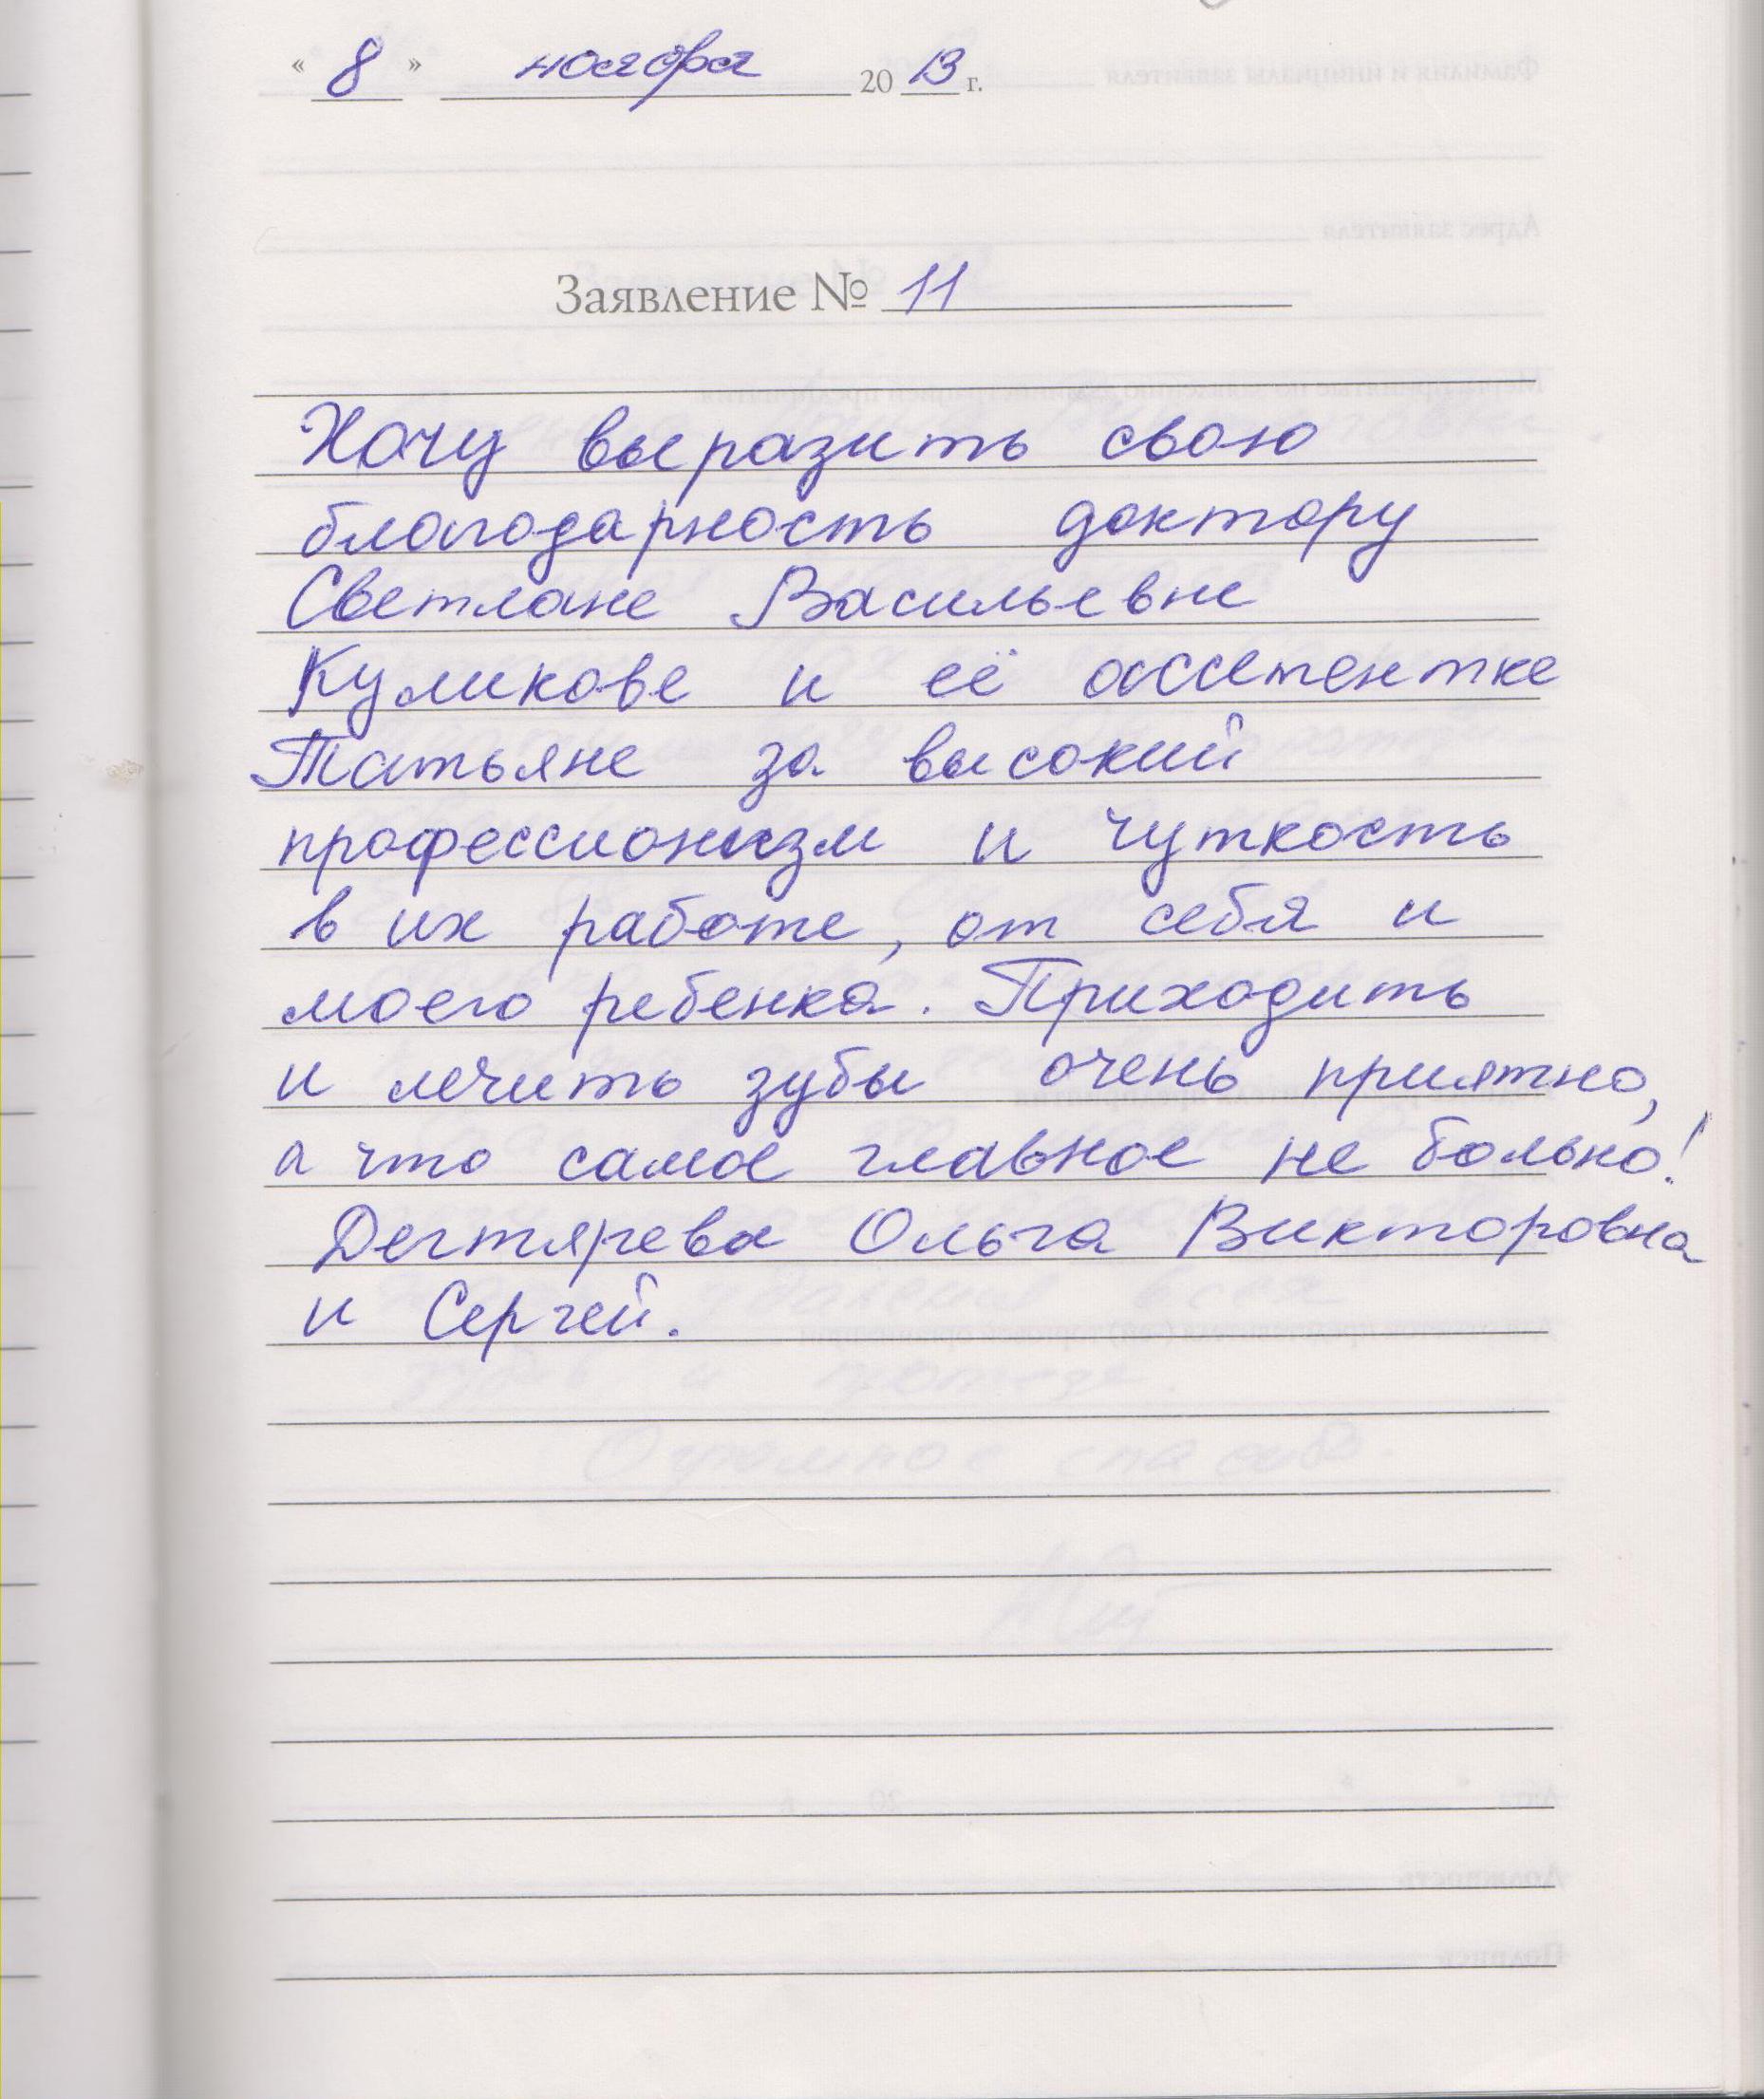 « 8 » ноября 20 13 г.
Заявление № 11
Хочу выразить свою
благодарность доктору
Светлане Васильевне
Куликове и её ассистентке
Татьяне за высокий
профессионизм и чуткость
в их работе, от себя и
моего ребенка. Приходить
и лечить зубы очень приятно,
а что самое главное не больно!
Дегтярева Ольга Викторовна
и Сергей.